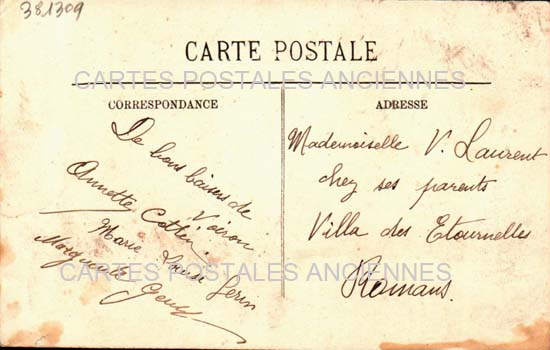 381309
CARTE POSTALE
CARTES POSTALES ANCIENNES
CORRESPONDANCE
De bons baisers de
Voiron
Annette Cottin
Marie Louise
Marguerite
CARTES POSTALES ANCIENNES
ADRESSE
Mademoiselle V. Laurent
chez ses parents
Villa des Etournelles
Romans.